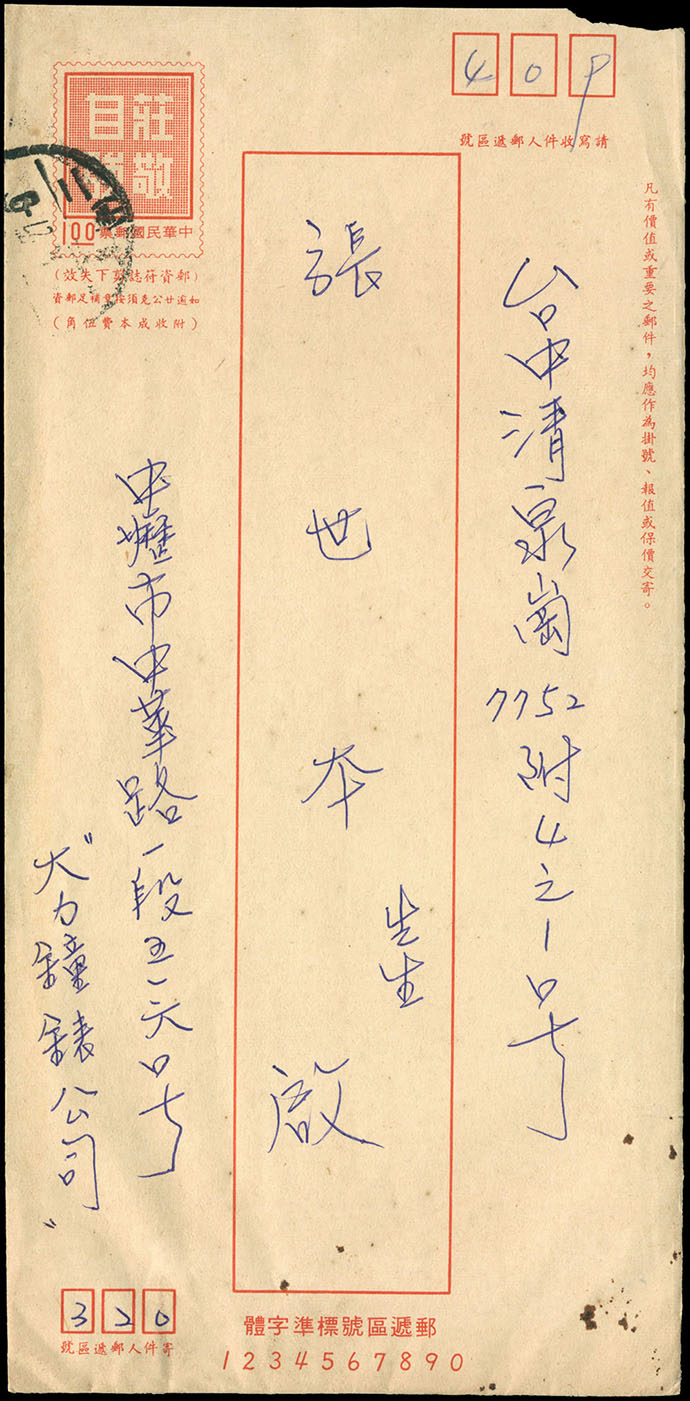 409
請寫收件人郵遞區號
凡有價值或重要之郵件，均應作為掛號、報值或保價交寄。
台中清泉崗7752附4之1号
張世本先生啟
莊敬自強
中華民國郵票
1.00
（郵資符誌剪下失效）
如逾廿公克須按章補足郵資
（附收成本費伍角）
中壢市中華路一段五一六号
"大力鐘錶公司"
320
寄件人郵遞區號
郵遞區號標準字體
1234567890